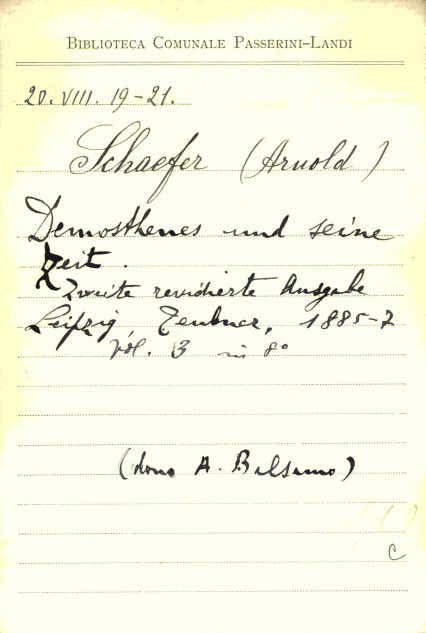 BIBLIOTECA COMUNALE PASSERINI-LANDI
20. VIII. 19-21.
Schaefer (Arnold)
Demosthenes und seine
Zeit.
Zweite revidierte Ausgabe
Leipzig, Teubner, 1885-7
Vol. 3 in 8°
(dono A. Balsamo)
C